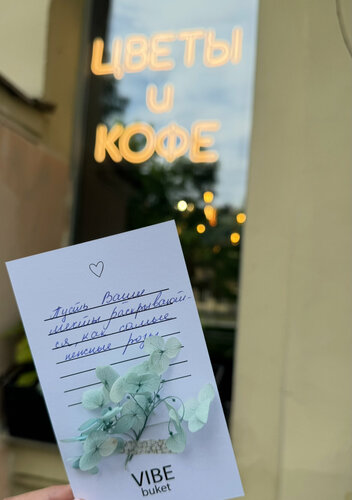 ЦВЕТЫ
и
КОФЕ
Пусть Ваши
мечты раскрывают-
ся, как самые
нежные розы
VIBE
buket